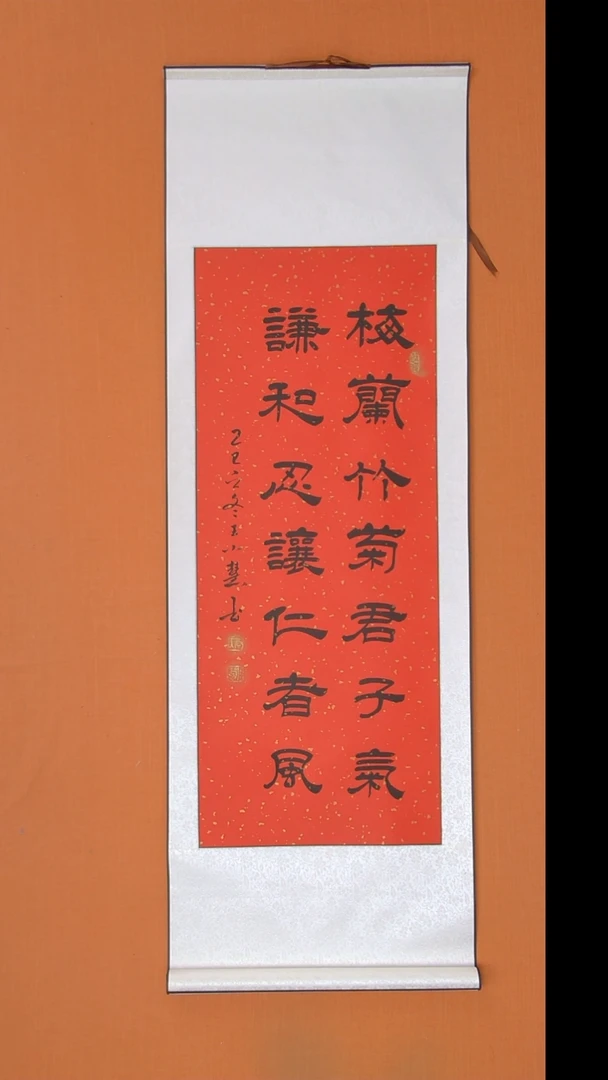 梅蘭竹菊君子氣
謙和忍讓仁者風
乙巳立冬王小慧书